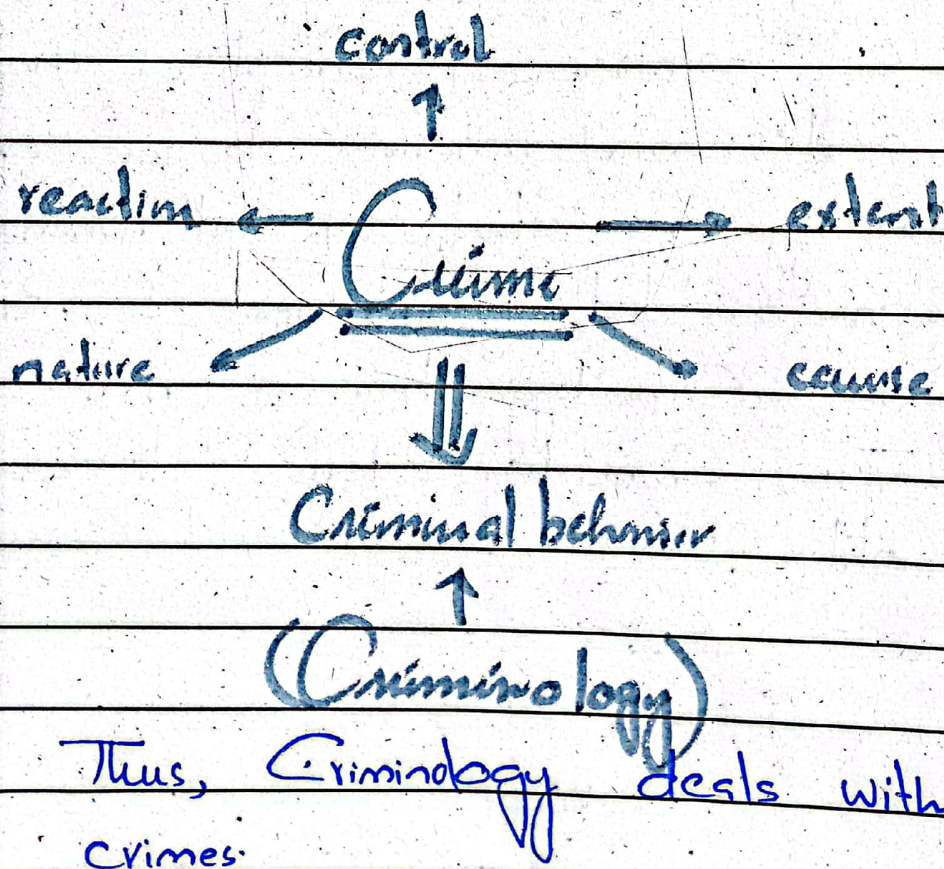 control
↑
reaction ← → extent
Crime
nature cause
⇓
Criminal behavior
↑
(Criminology)
Thus, Criminology deals with
crimes.